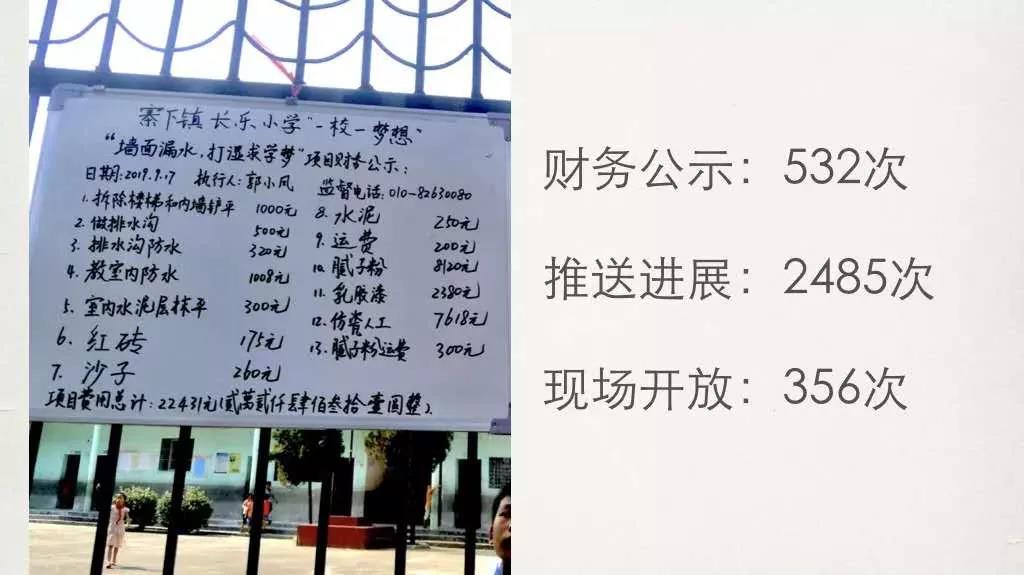 寨下镇长乐小学"一校一梦想"
"墙面漏水,打湿求学梦"项目财务公示:
日期:2019.9.17 执行人:郭小风 监督电话:010-82630080
1.拆除楼梯和内墙铲平 1000元
2.做排水沟 500元
3.排水沟防水 320元
4.教室内防水 1008元
5.室内水泥层抹平 300元
6.红砖 175元
7.沙子 260元
8.水泥 250元
9.运费 200元
10.腻子粉 8120元
11.乳胶漆 2380元
12.仿瓷人工 7618元
13.腻子粉运费 300元
项目费用总计:22431元(贰萬贰仟肆佰叁拾壹圆整).
财务公示:532次
推送进展:2485次
现场开放:356次